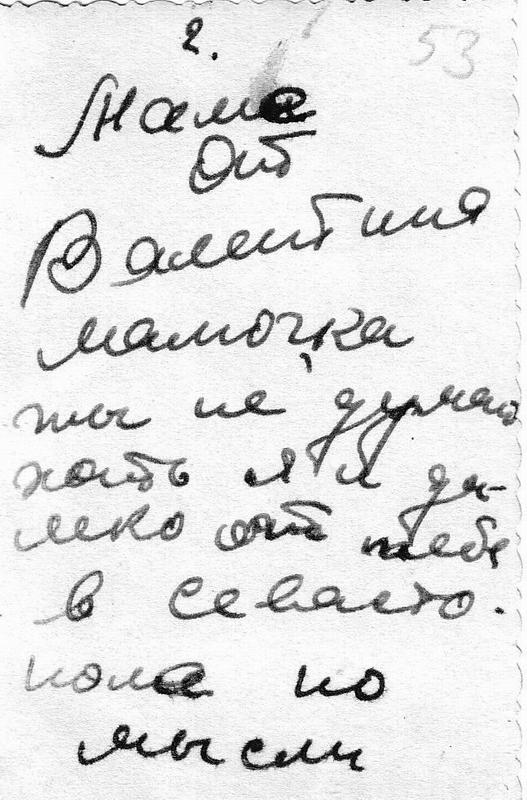 2. 53
Маме
от
Валентина
мамочка
ты не думай
хоть я и да-
леко от тебя
в Севасто-
поле но
мысли